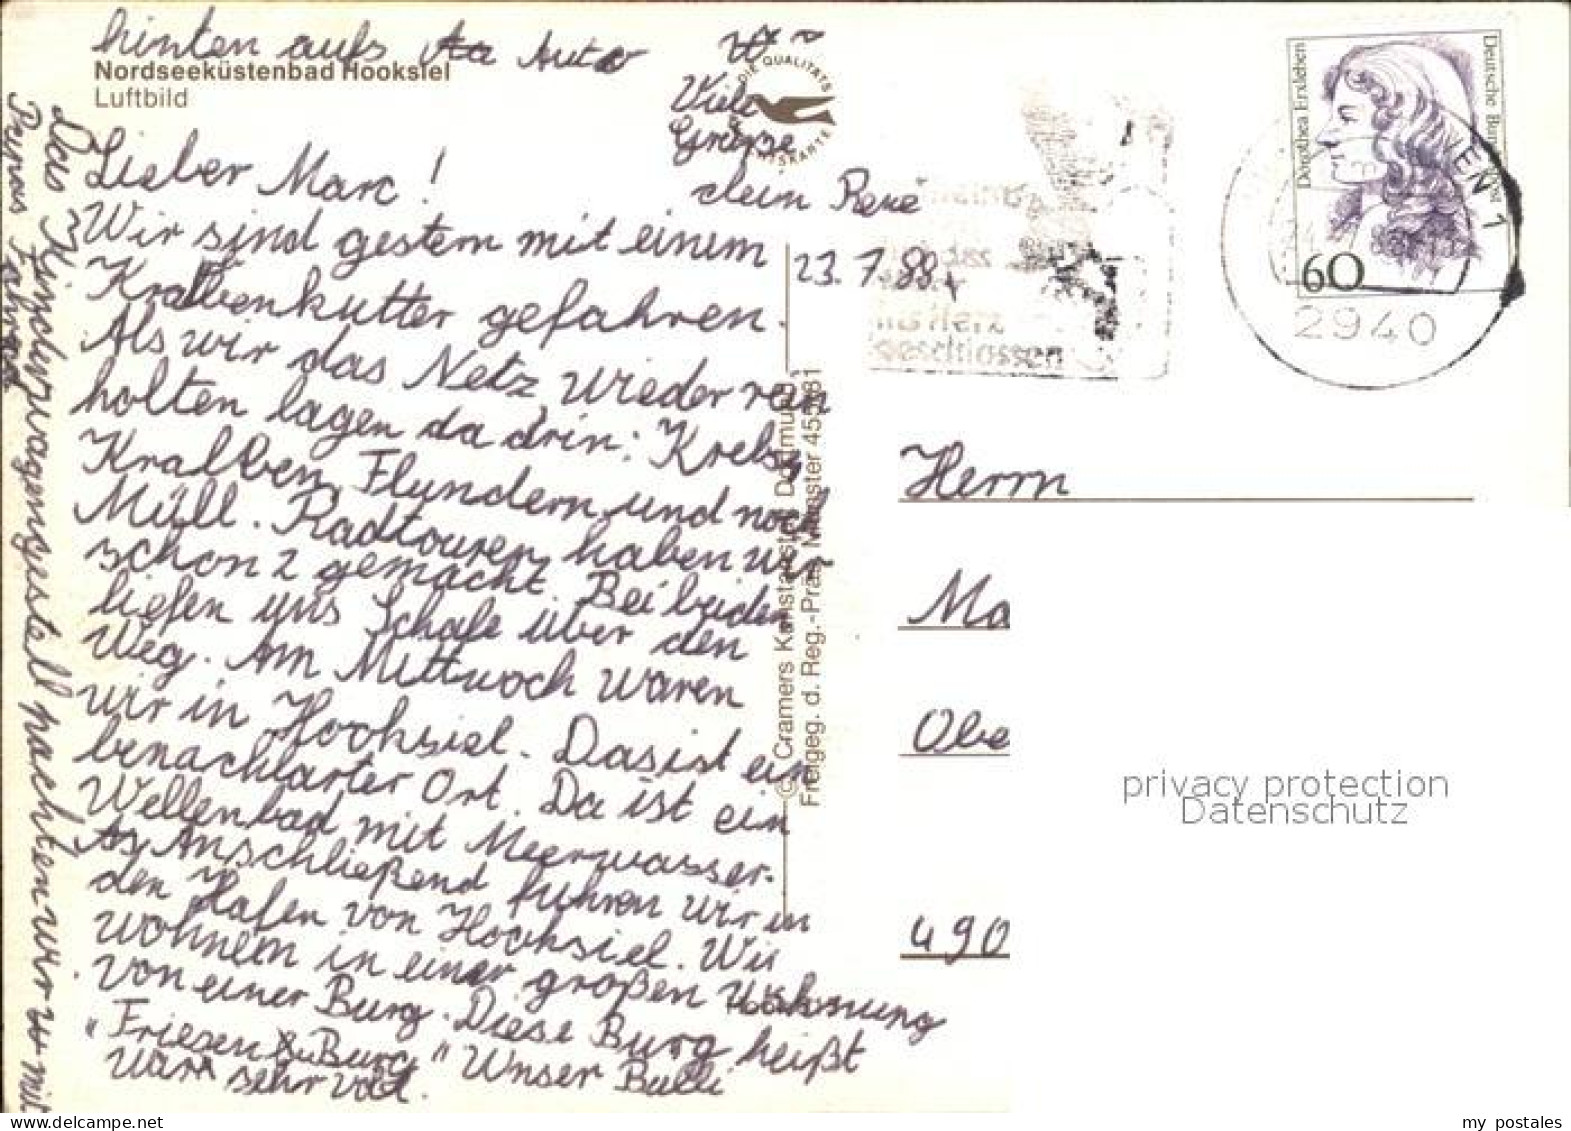 hinten aufs Auto
Nordseeküstenbad Hooksiel
Luftbild
Lieber Marc!
Wir sind gestern mit einem
Krabbenkutter gefahren.
Als wir das Netz wieder rein
holten lagen da drin: Krebse
Krabben, Flundern und noch
Müll. Radtouren haben wir
schon 2 gemacht. Bei beiden
liefen uns Schafe über den
Weg. Am Mittwoch waren
wir in Hooksiel. Das ist ein
benachbarter Ort. Da ist ein
Wellenbad mit Meerwasser.
Anschließend fuhren wir in
den Hafen von Hooksiel. Wir
wohnen in einer großen Wohnung
von einer Burg. Diese Burg heißt
"Friesen Burg" Unser Bulli
war sehr voll.
Das Kirschwagengestell packten wir mit
DIE QUALITÄTS
Viele
Grüsse
dein René
23.7.88
© Cramers Kunstanstalt, Dortmund
Freigeg. d. Reg.-Präs. Münster
ins Herz
geschlossen
Dorothea Erxleben
Deutsche Bundespost
60
VEN 1
2940
Herrn
Ma
Obe
490
privacy protection
Datenschutz
my postales